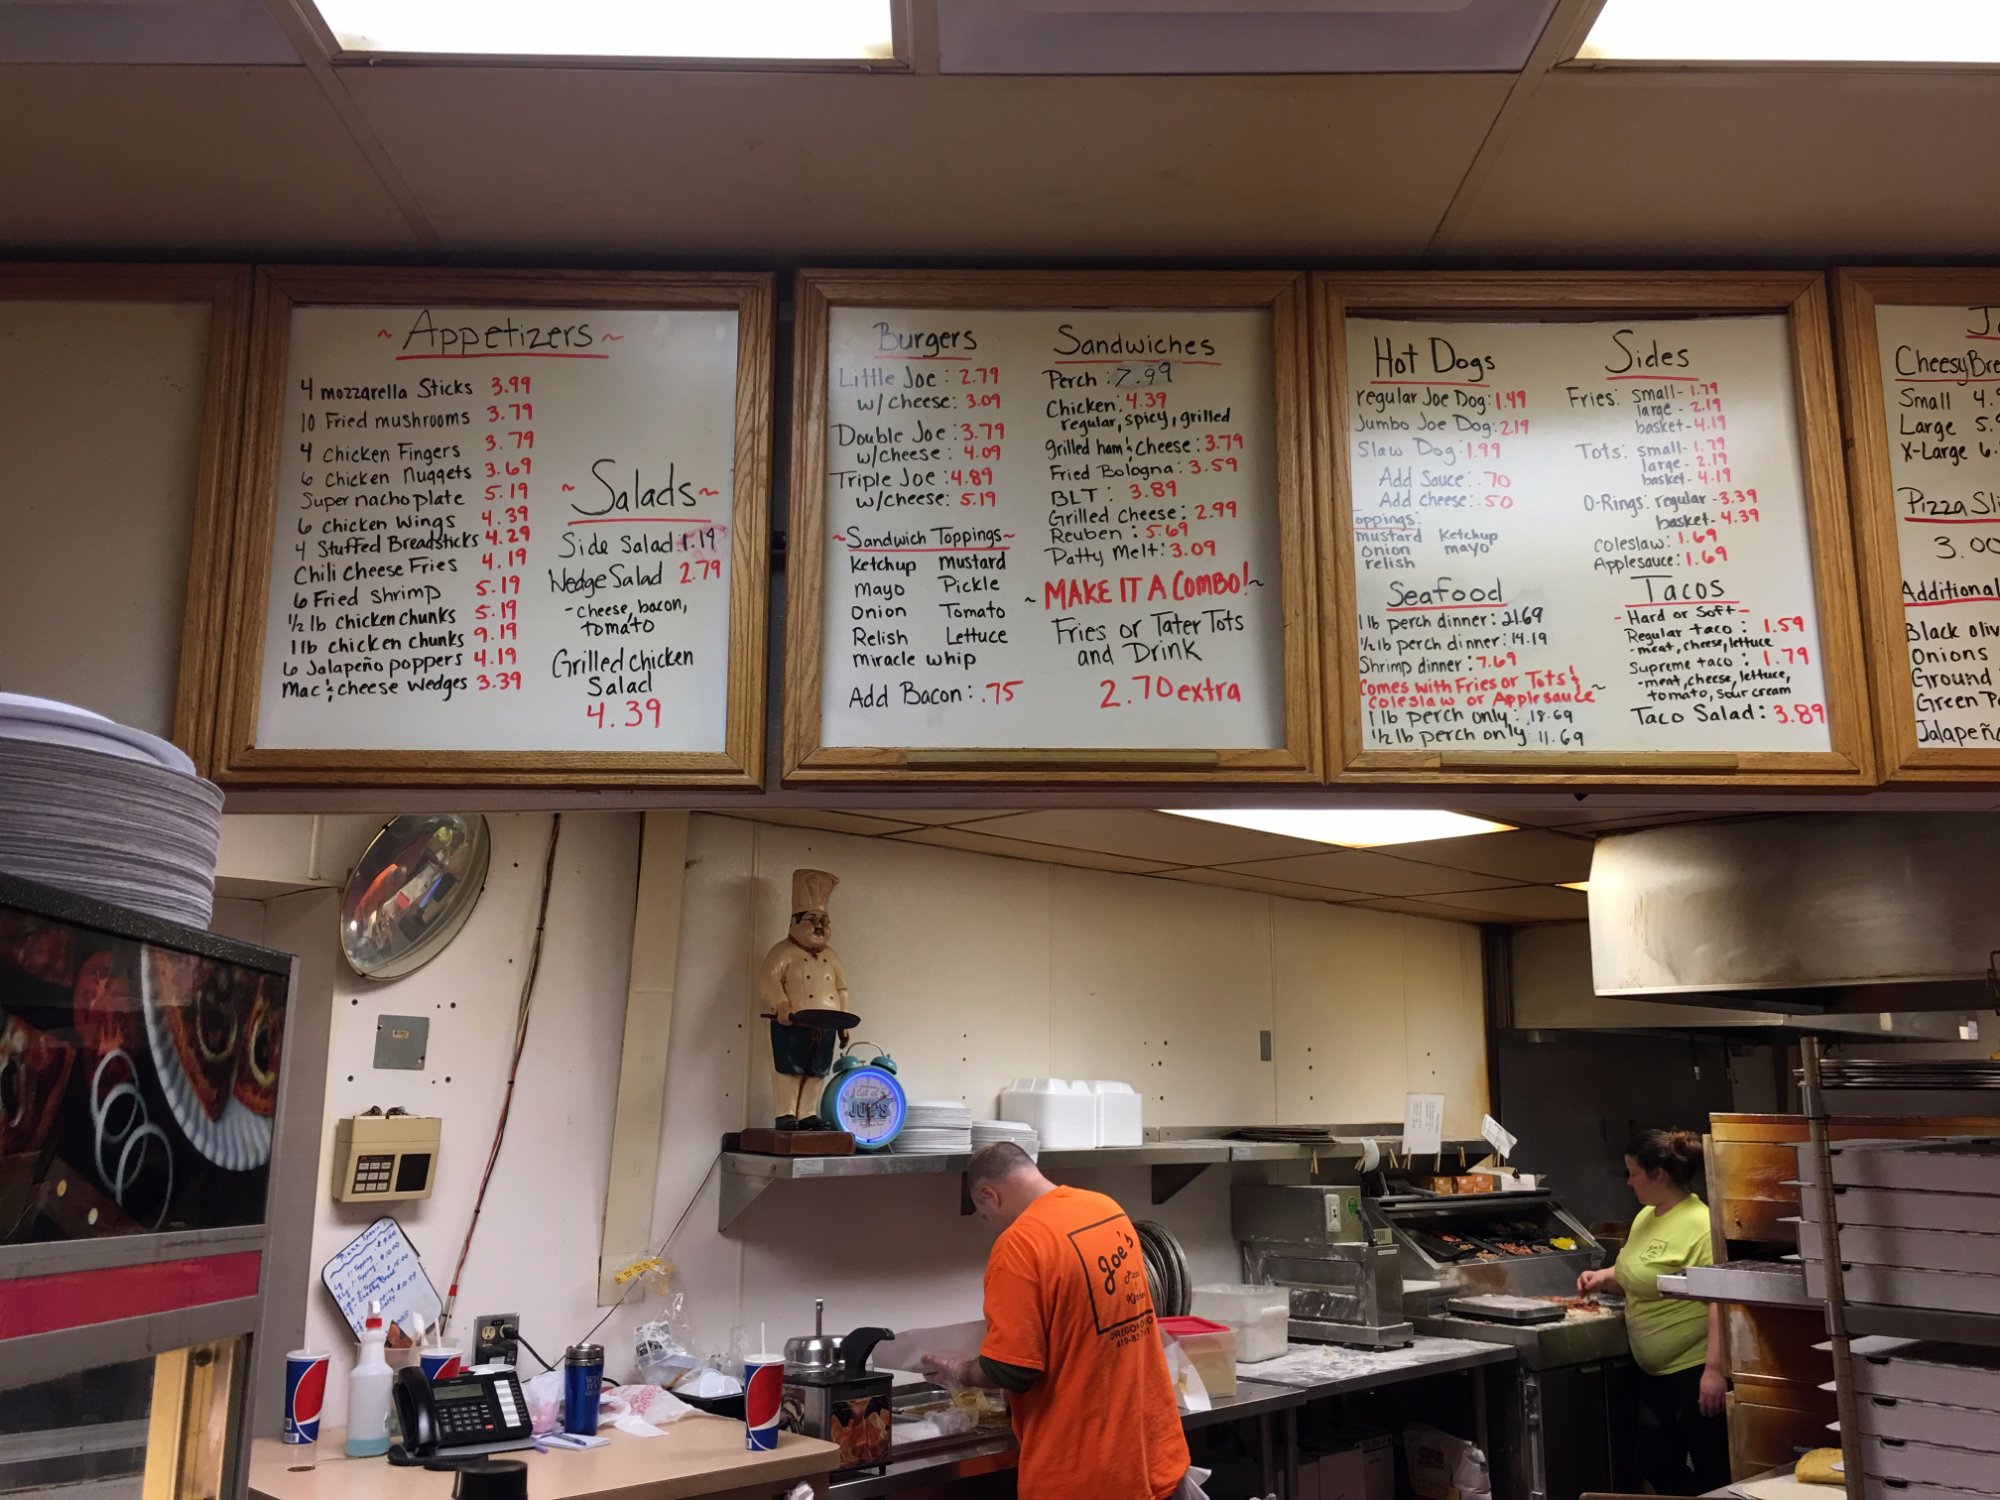 ~ Appetizers ~
4 mozzarella Sticks 3.99
10 Fried mushrooms 3.79
4 Chicken Fingers 3.79
6 Chicken Nuggets 3.69
Super nacho plate 5.19
6 chicken Wings 4.39
4 Stuffed Breadsticks 4.29
Chili Cheese Fries 4.19
6 Fried Shrimp 5.19
1/2 lb chicken chunks 5.19
1 lb chicken chunks 9.19
6 Jalapeño poppers 4.19
Mac & cheese Wedges 3.39
~ Salads ~
Side Salad: 1.19
Wedge Salad 2.79
- cheese, bacon,
tomato
Grilled chicken
Salad
4.39
Burgers
Little Joe: 2.79
w/cheese: 3.09
Double Joe: 3.79
w/cheese: 4.09
Triple Joe: 4.89
w/cheese: 5.19
~Sandwich Toppings~
Ketchup mustard
mayo Pickle
Onion Tomato
Relish Lettuce
miracle whip
Add Bacon: .75
Sandwiches
Perch: 7.99
Chicken: 4.39
regular, spicy, grilled
grilled ham & Cheese: 3.79
Fried Bologna: 3.59
BLT: 3.89
Grilled cheese: 2.99
Reuben: 5.69
Patty Melt: 3.09
~ MAKE IT A COMBO! ~
Fries or Tater Tots
and Drink
2.70 extra
Hot Dogs
regular Joe Dog: 1.49
Jumbo Joe Dog: 2.19
Slaw Dog: 1.99
Add Sauce: .70
Add cheese: .50
Toppings:
mustard Ketchup
onion mayo
relish
Seafood
1 lb perch dinner: 21.69
1/2 lb perch dinner: 14.19
Shrimp dinner: 7.69
Comes with Fries or Tots &
coleslaw or Applesauce ~
1 lb perch only: 18.69
1/2 lb perch only: 11.69
Sides
Fries: small- 1.79
large - 2.19
basket- 4.19
Tots: small- 1.79
large- 2.19
basket- 4.19
O-Rings: regular - 3.39
basket- 4.39
Coleslaw: 1.69
Applesauce: 1.69
Tacos
- Hard or Soft -
Regular taco: 1.59
- meat, cheese, lettuce
Supreme taco: 1.79
- meat, cheese, lettuce,
tomato, sour cream
Taco Salad: 3.89
Small
Large
X-Large
3.00
Additional
Onions
Ground
Eat at
JOE'S
Joe's